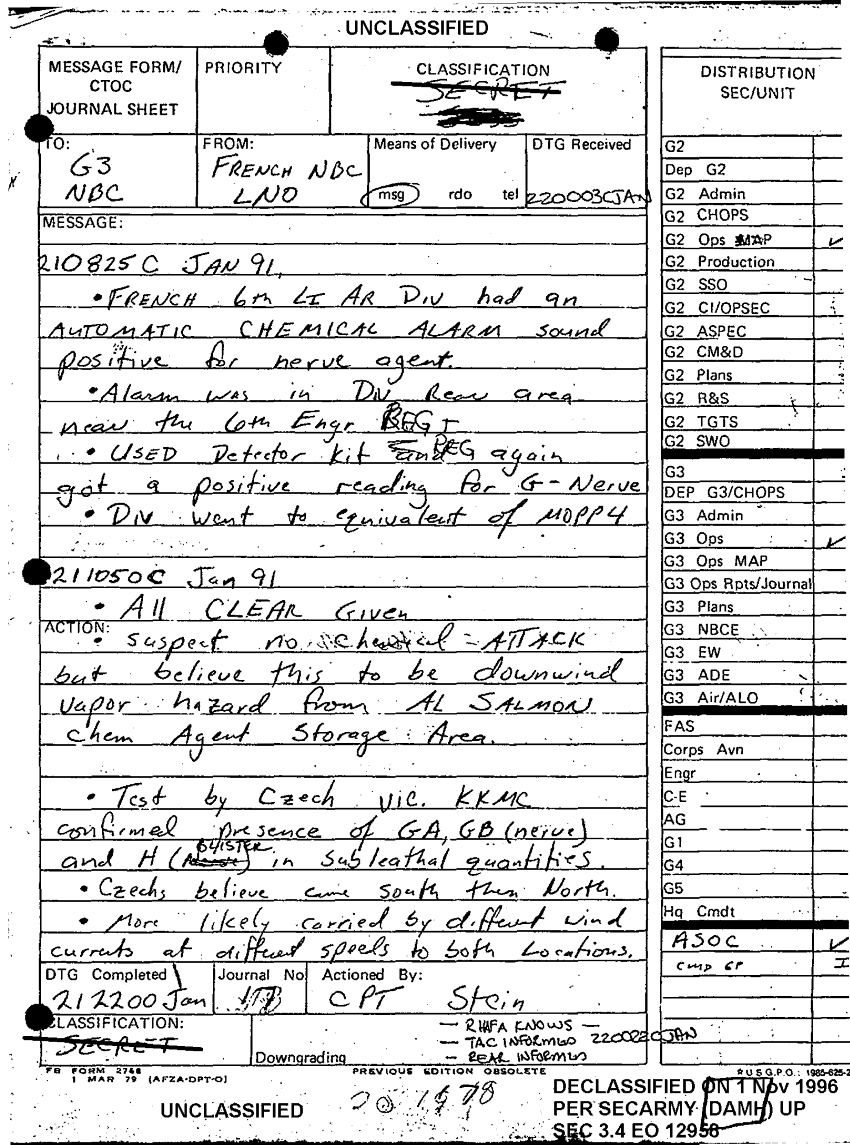 UNCLASSIFIED
MESSAGE FORM/
CTOC
JOURNAL SHEET
PRIORITY
CLASSIFICATION
SECRET
TO:
G3
NBC
FROM:
FRENCH NBC
LNO
Means of Delivery
msg rdo tel
DTG Received
220003CJAN
MESSAGE:
210825 C JAN 91,
• FRENCH 6th LI AR DIV had an
AUTOMATIC CHEMICAL ALARM sound
positive for nerve agent.
• Alarm was in DIV Rear area
near the 6th Engr REGT
• USED Detector kit and again
got a positive reading for G-Nerve
• DIV went to equivalent of MOPP4
211050C Jan 91
• All CLEAR Given
ACTION:
• suspect no chemical ATTACK
but believe this to be downwind
vapor hazard from AL SALMON
Chem Agent Storage Area.
• Test by Czech vic. KKMC
confirmed presence of GA, GB (nerve)
and H (BLISTER) in subleathal quantities.
• Czechs believe came south then North.
• More likely carried by different wind
currents at different speeds to both Locations.
DTG Completed
212200 Jan
Journal No
Actioned By:
CPT Stein
CLASSIFICATION:
SECRET
Downgrading
— RHAFA KNOWS —
— TAC INFORMED 220022CJAN
— REAR INFORMED
FB FORM 2748
1 MAR 79 (AFZA-DPT-O)
PREVIOUS EDITION OBSOLETE
DISTRIBUTION
SEC/UNIT
G2
Dep G2
G2 Admin
G2 CHOPS
G2 Ops MAP ✓
G2 Production
G2 SSO
G2 CI/OPSEC
G2 ASPEC
G2 CM&D
G2 Plans
G2 R&S
G2 TGTS
G2 SWO
G3
DEP G3/CHOPS
G3 Admin
G3 Ops ✓
G3 Ops MAP
G3 Ops Rpts/Journal
G3 Plans
G3 NBCE
G3 EW
G3 ADE
G3 Air/ALO
FAS
Corps Avn
Engr
C-E
AG
G1
G4
G5
Hq Cmdt
ASOC ✓
CMD GP I
UNCLASSIFIED
DECLASSIFIED ON 1 Nov 1996
PER SECARMY (DAMH) UP
SEC 3.4 EO 12958